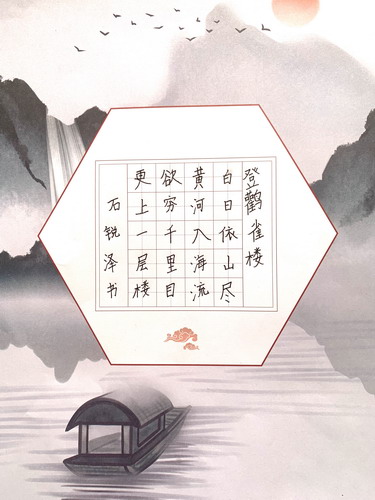 登鹳雀楼
白日依山尽
黄河入海流
欲穷千里目
更上一层楼
石锐泽书